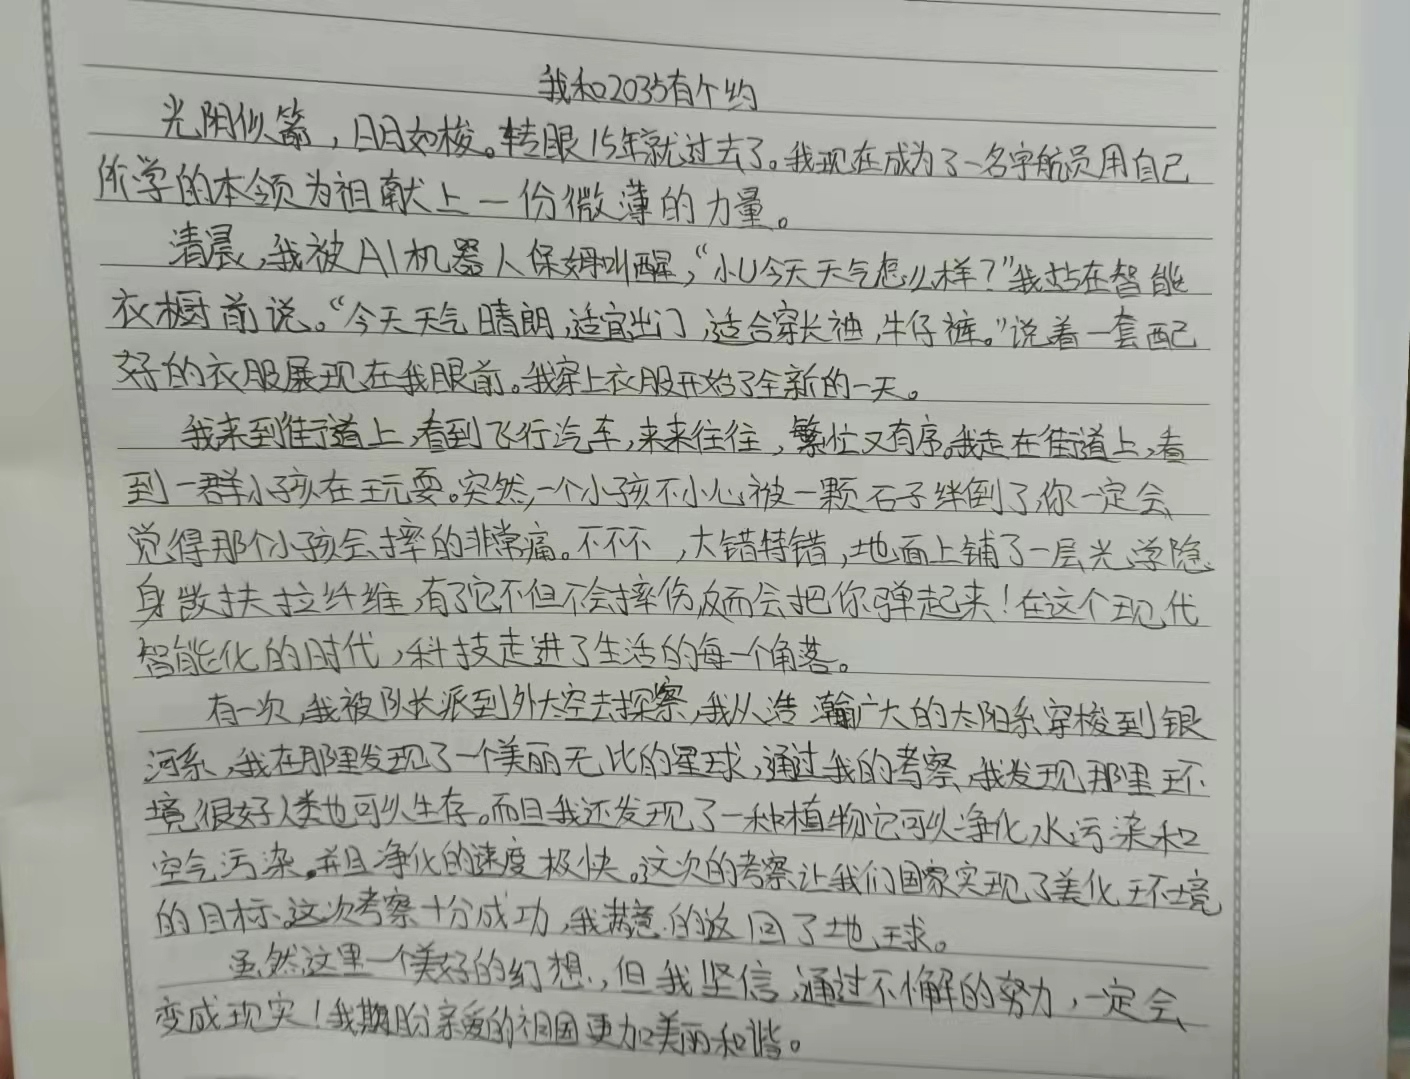 我和2035有个约
光阴似箭，日月如梭。转眼15年就过去了。我现在成为了一名宇航员用自己
所学的本领为祖献上一份微薄的力量。
清晨，我被AI机器人保姆叫醒，“小U今天天气怎么样？”我站在智能
衣橱前说。“今天天气晴朗，适宜出门，适合穿长袖，牛仔裤。”说着一套配
好的衣服展现在我眼前。我穿上衣服开始了全新的一天。
我来到街道上，看到飞行汽车，来来往往，繁忙又有序。我走在街道上，看
到一群小孩在玩耍。突然，一个小孩不小心被一颗石子绊倒了，你一定会
觉得那个小孩会摔的非常痛。不不不，大错特错，地面上铺了一层光学隐
身散扶拉纤维，有了它不但不会摔伤反而会把你弹起来！在这个现代
智能化的时代，科技走进了生活的每一个角落。
有一次，我被队长派到外太空去探察，我从浩瀚广大的太阳系穿梭到银
河系，我在那里发现了一个美丽无比的星球，通过我的考察，我发现那里环
境很好人类也可以生存。而且我还发现了一种植物它可以净化水污染和
空气污染。并且净化的速度极快。这次的考察让我们国家实现了美化环境
的目标。这次考察十分成功，我满意的返回了地球。
虽然这里一个美好的幻想，但我坚信，通过不懈的努力，一定会
变成现实！我期盼亲爱的祖国更加美丽和谐。